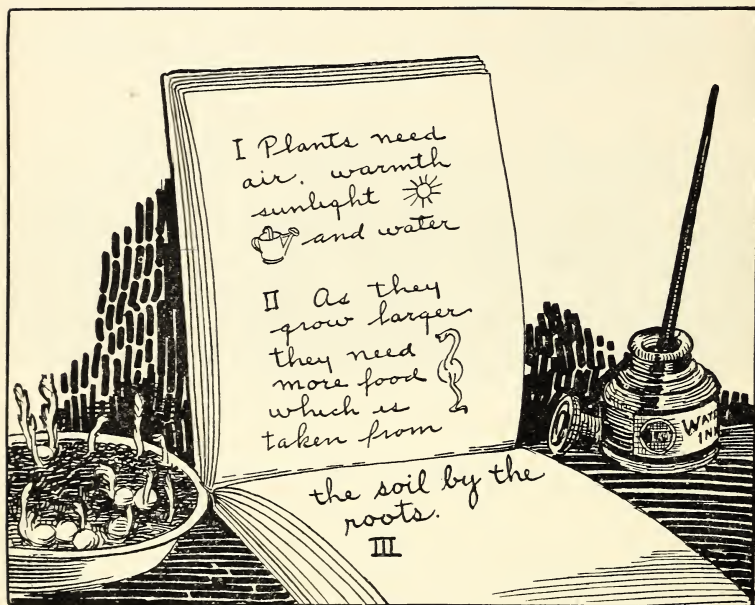 I Plants need
air, warmth
sunlight
and water
II As they
grow larger
they need
more food
which is
taken from
the soil by the
roots.
III
WAT
INK